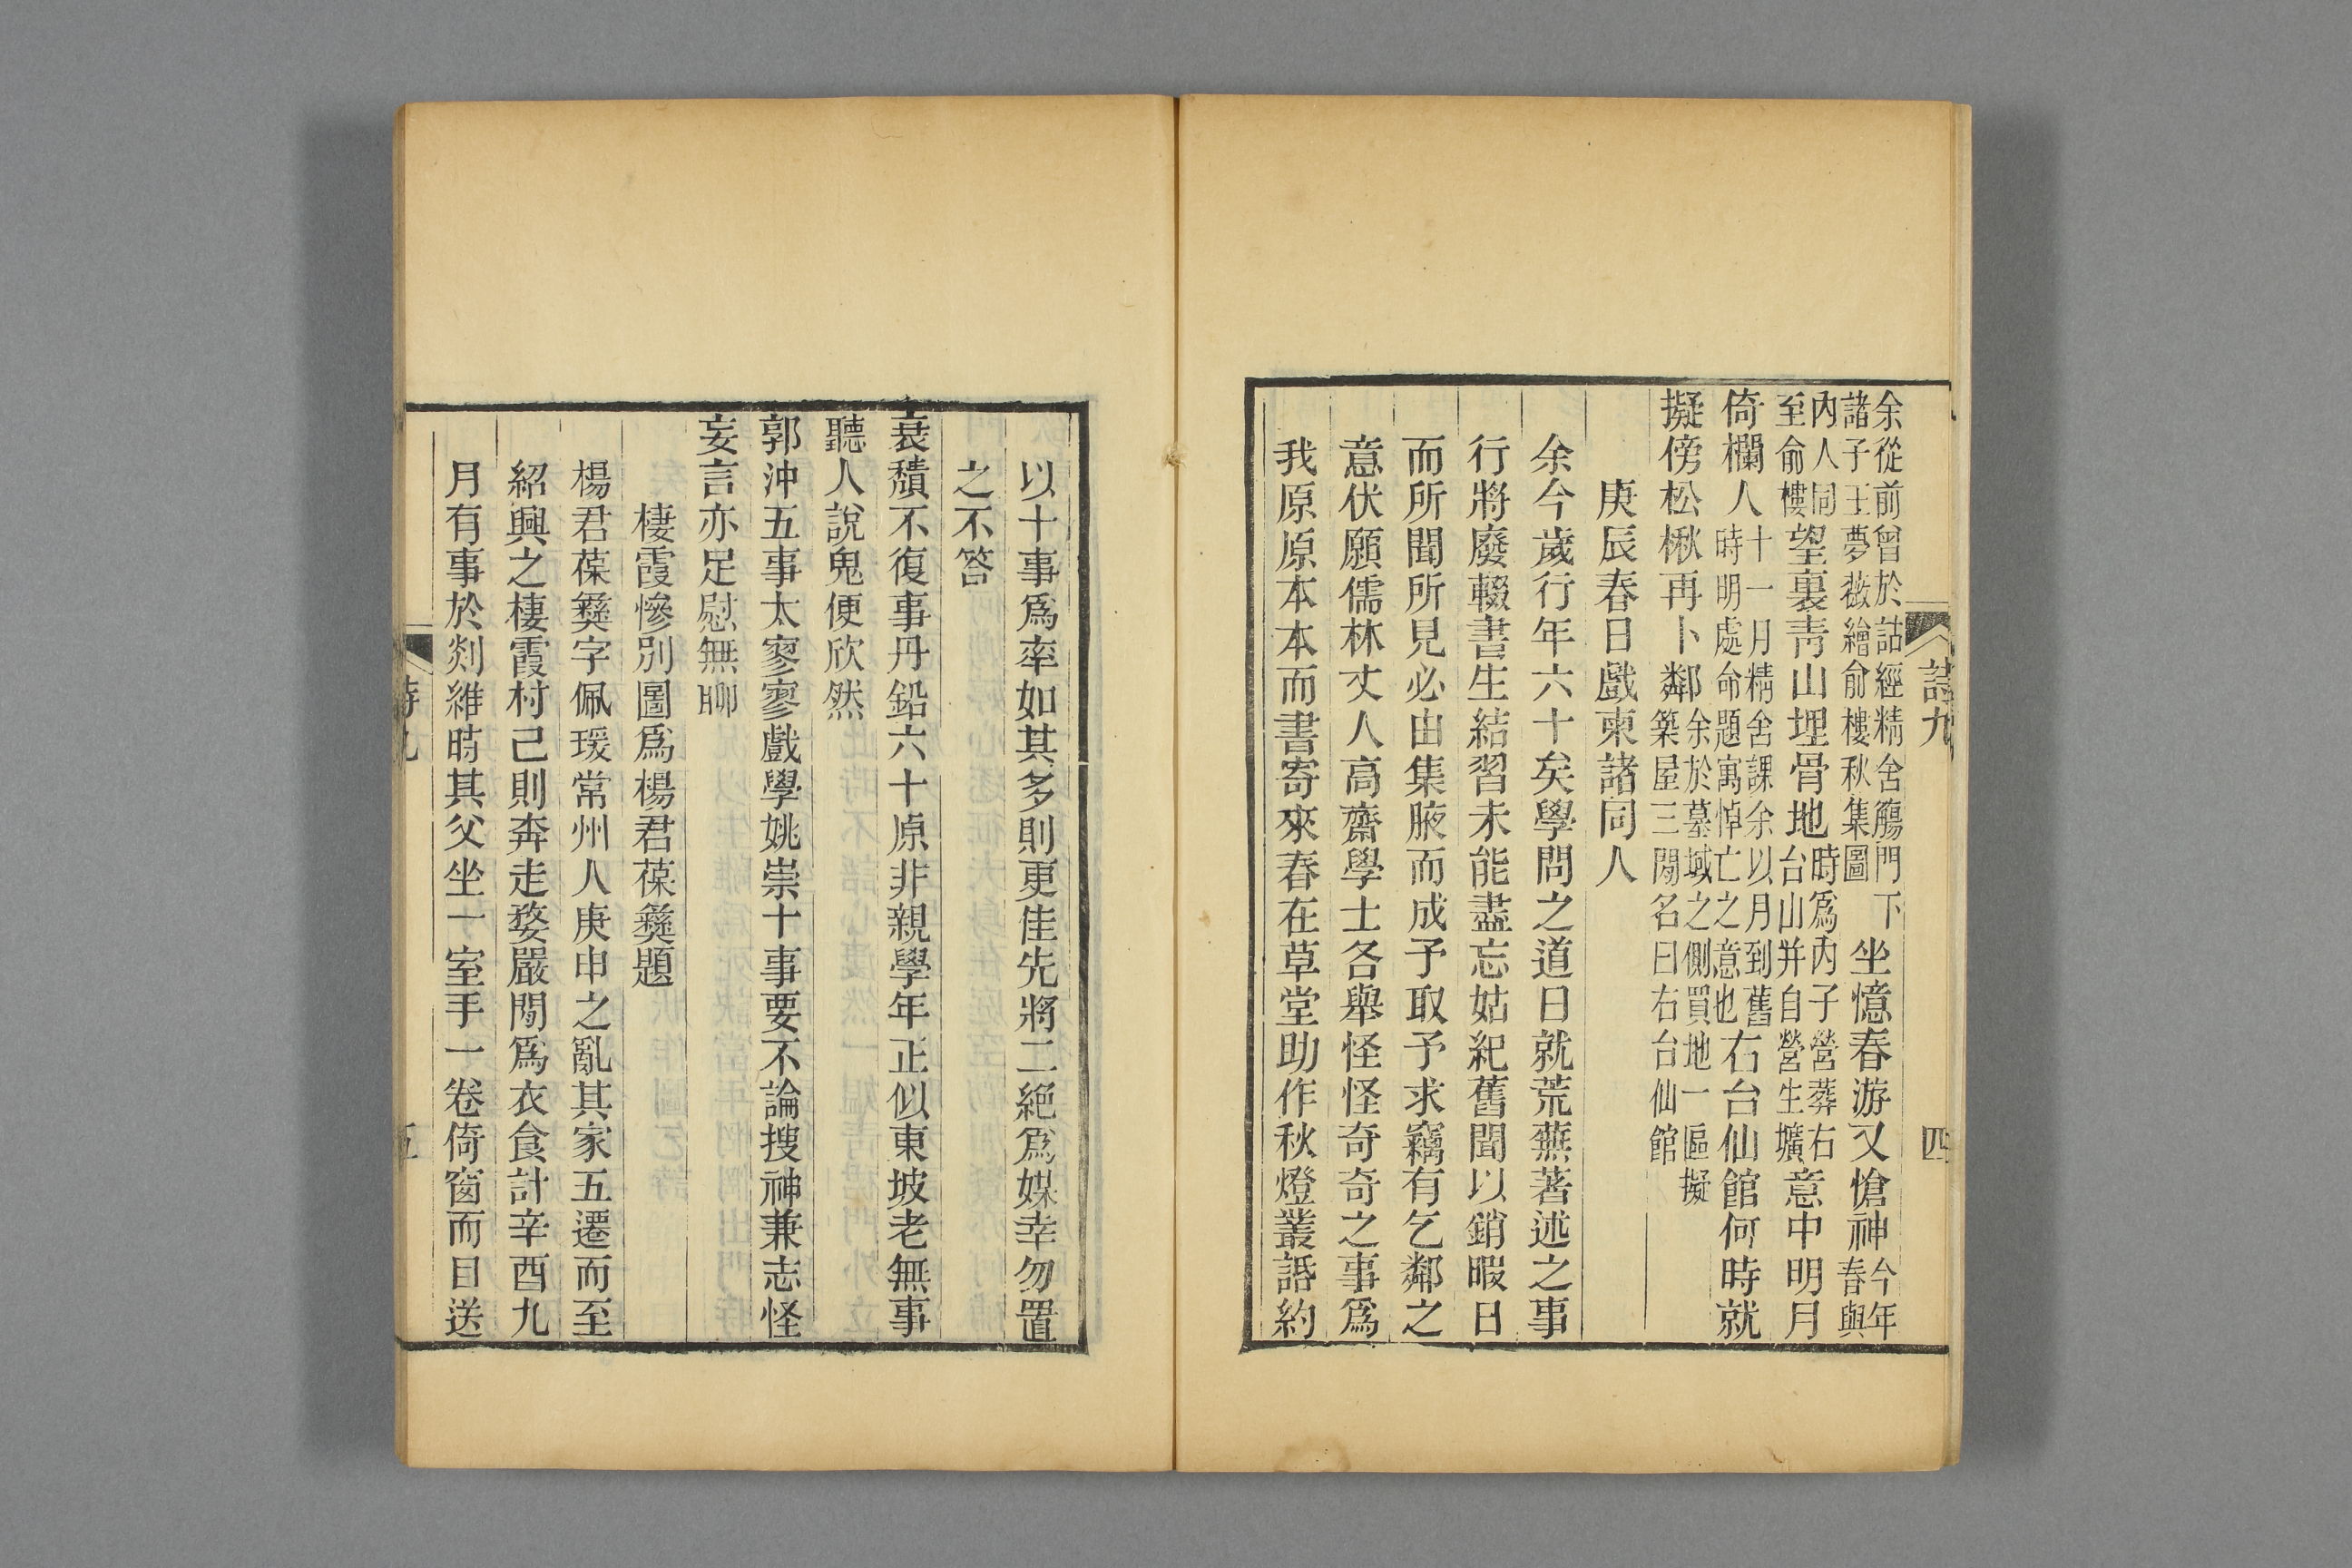 詩九 四
余從前曾於詁經精舍觴門下諸子王夢薇繪俞樓秋集圖坐憶春游又愴神今年春與
內人同至俞樓望裏靑山埋骨地時爲內子營葬右台山幷自營生壙意中明月
倚欄人十一月精舍課余以月到舊時明處命題寓悼亡之意也右台仙館何時就
擬傍松楸再卜鄰余於墓域之側買地一區擬築屋三閒名曰右台仙館
庚辰春日戲柬諸同人
余今歲行年六十矣學問之道日就荒蕪著述之事
行將廢輟書生結習未能盡忘姑紀舊聞以銷暇日
而所聞所見必由集腋而成予取予求竊有乞鄰之
意伏願儒林丈人高齋學士各舉怪怪奇奇之事爲
我原原本本而書寄來春在草堂助作秋燈叢話約
以十事爲率如其多則更佳先將二絕爲媒幸勿置
之不答
衰穨不復事丹鉛六十原非親學年正似東坡老無事
聽人說鬼便欣然
郭沖五事太寥寥戲學姚崇十事要不論搜神兼志怪
妄言亦足慰無聊
棲霞慘別圖爲楊君葆彝題
楊君葆彝字佩瑗常州人庚申之亂其家五遷而至
紹興之棲霞村己則奔走婺嚴閒爲衣食計辛酉九
月有事於剡維時其父坐一室手一卷倚窗而目送
詩九 五